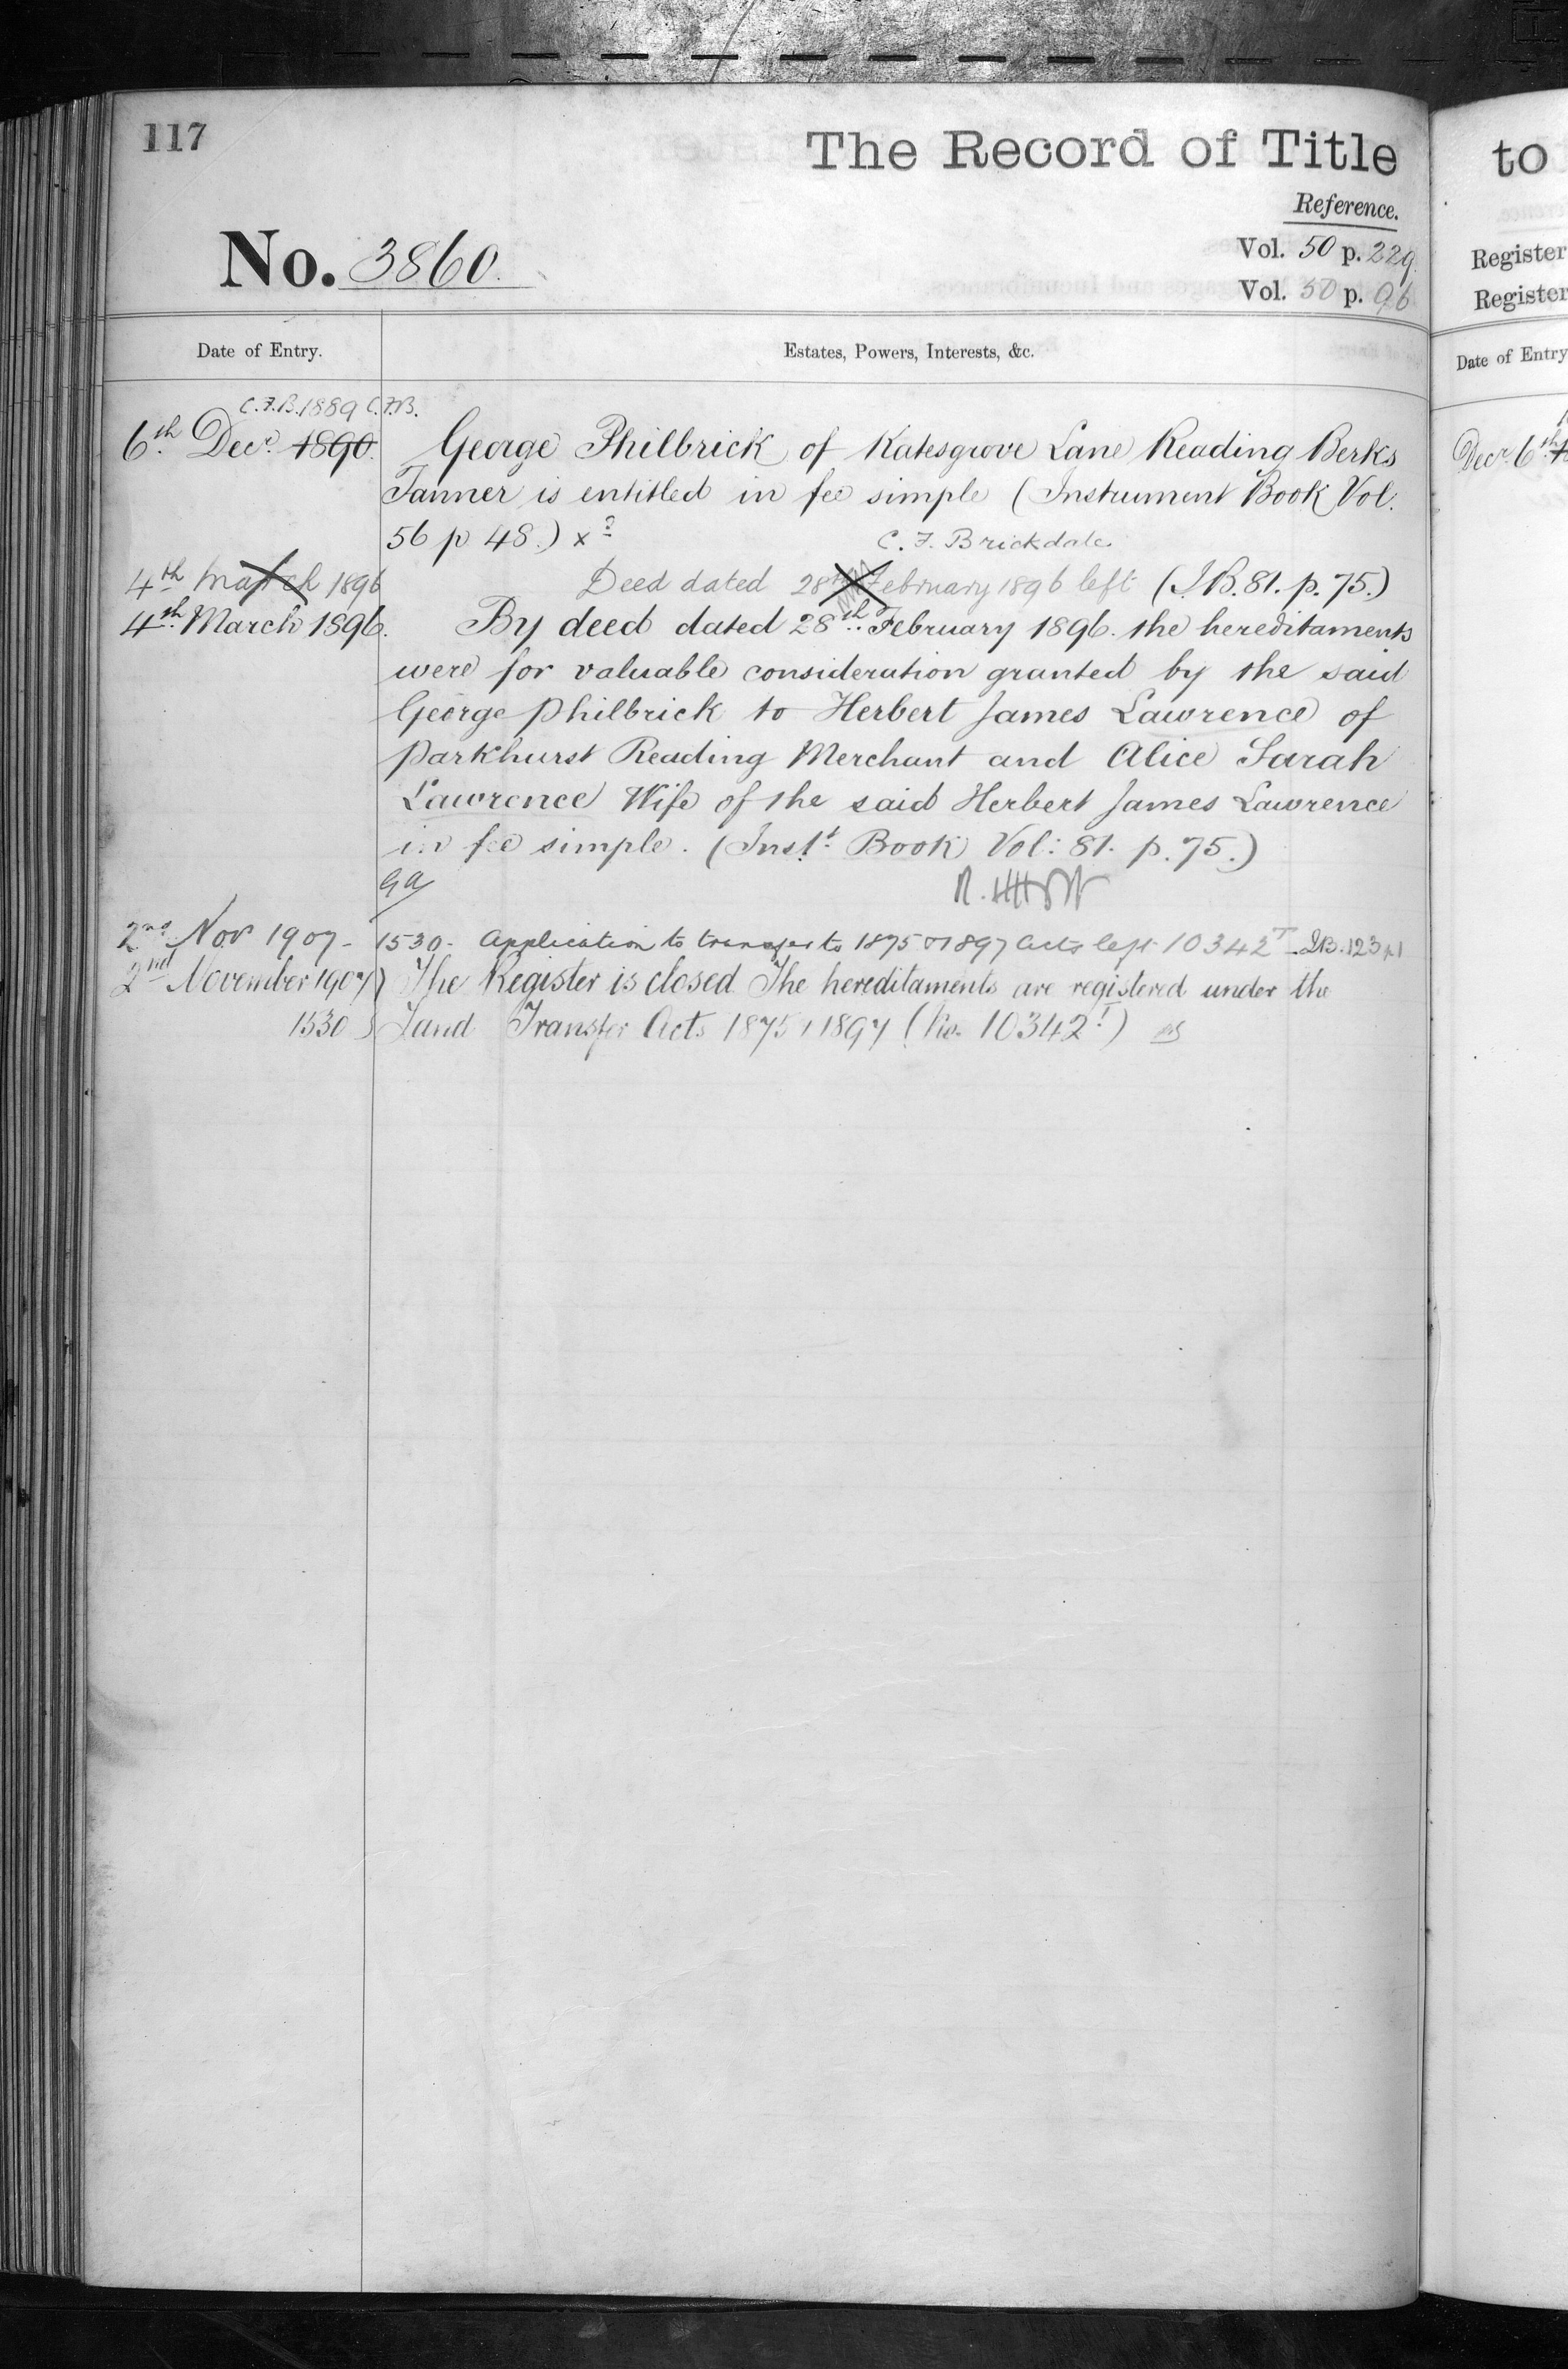 117
The Record of Title
Reference.
No. 3860.
Vol. 50 p. 229.
Vol. 50 p. 96
Date of Entry.
Estates, Powers, Interests, &c.
C.F.B. 1889 C.F.B.
6th Decr. 1890. George Philbrick of Katesgrove Lane Reading Berks
Tanner is entitled in fee simple (Instrument Book Vol.
56 p 48.) x
C. F. Brickdale
4th March 1896 Deed dated 28th February 1896 left (I.B. 81. p. 75.)
4th March 1896. By deed dated 28th February 1896. the hereditaments
were for valuable consideration granted by the said
George Philbrick to Herbert James Lawrence of
Parkhurst Reading Merchant and Alice Sarah
Lawrence Wife of the said Herbert James Lawrence
in fee simple. (Inst. Book Vol: 81. p. 75.)
2nd Nov 1907 - 1530 - Application to transfer to 1875 & 1897 Acts left 10342T - I.B. 123
2nd November 1907) The Register is closed The hereditaments are registered under the
1530) Land Transfer Acts 1875 & 1897 (No. 10342T)
to
Register
Register
Date of Entry
Decr. 6th